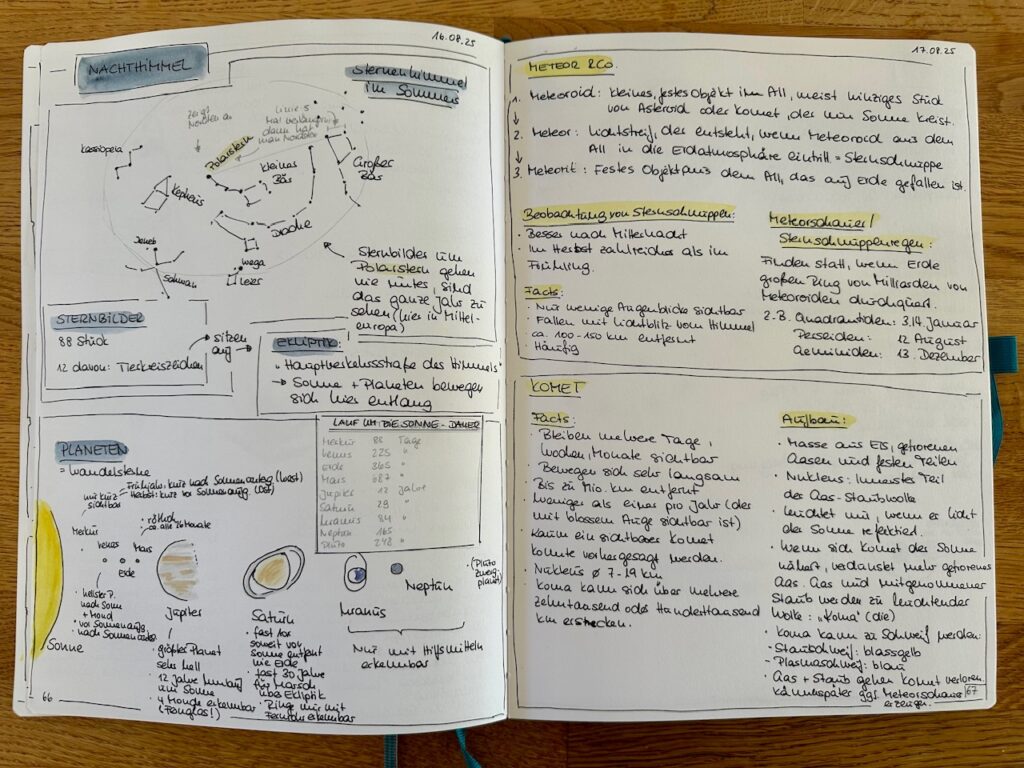 16.08.25
NACHTHIMMEL
Sternenhimmel
im Sommer
zeigt
Norden an
Linie 5
Mal verlängern
dann hat
man Norden
Polarstern
Kassiopeia
kleines
Bär
Großer
Bär
Kepheus
Drache
Deneb
Schwan
Wega
Leier
Sternbilder um
Polarstern gehen
nie unter, sind
das ganze Jahr zu
sehen (hier in Mittel-
europa)
STERNBILDER
88 Stück
12 davon: Tierkreiszeichen
sitzen
auf
EKLIPTIK:
"Hauptverkehrsstraße des Himmels"
→ Sonne + Planeten bewegen
sich hier entlang
PLANETEN
= Wandelsterne
LAUF UM DIE SONNE - DAUER
Merkur 88 Tage
Venus 225 "
Erde 365 "
Mars 687 "
Jupiter 12 Jahre
Saturn 29 "
Uranus 84 "
Neptun 165
Pluto 248 "
nur kurz
sichtbar
Frühjahr: kurz nach Sonnenunterg. (West)
Herbst: kurz vor Sonnenaufg. (Ost)
Merkur
Venus
Erde
Mars
rötlich
ca. alle 26 Monate
hellster P.
nach Sonne
+ Mond
vor Sonnenaufg.
nach Sonnenunterg.
Sonne
Jupiter
größter Planet
sehr hell
12 Jahre Umlauf
um Sonne
4 Monde erkennbar
(Fernglas!)
Saturn
fast 10x
soweit von
Sonne entfernt
wie Erde
fast 30 Jahre
für Marsch
über Ekliptik
Ringe nur mit
Fernrohr erkennbar
Uranus
Neptun
(Pluto
Zwerg-
planet)
Nur mit Hilfsmitteln
erkennbar
66
17.08.25
METEOR & CO.
1. Meteoroid: kleines, festes Objekt im All, meist winziges Stück
von Asteroid oder Komet, der um Sonne kreist.
2. Meteor: Lichtstreif, der entsteht, wenn Meteoroid aus dem
All in die Erdatmosphäre eintritt = Sternschnuppe
3. Meteorit: Festes Objekt aus dem All, das auf Erde gefallen ist.
Beobachtung von Sternschnuppen:
· Besser nach Mitternacht
· Im Herbst zahlreicher als im
Frühling.
Facts:
· Nur wenige Augenblicke sichtbar
· Fallen mit Lichtblitz vom Himmel
· ca. 100-150 km entfernt
· Häufig
Meteorschauer/
Sternschnuppenregen:
Finden statt, wenn Erde
großen Ring von Milliarden von
Meteoroiden durchquert.
z.B. Quadrantiden: 3./4. Januar
Perseiden: 12 August
Geminiden: 13. Dezember
KOMET
Facts:
· Bleiben mehrere Tage,
Wochen, Monate sichtbar
· Bewegen sich sehr langsam
· Bis zu Mio. km entfernt
· Weniger als einer pro Jahr (der
mit blossem Auge sichtbar ist)
· Kaum ein sichtbarer Komet
konnte vorhergesagt werden.
· Nukleus ø 7-19 km
· Koma kann sich über mehrere
zehntausend oder Hunderttausend
km erstrecken.
Aufbau:
· Masse aus Eis, gefrorenen
Gasen und festen Teilen
· Nukleus: Innerstes Teil
der Gas-Staubwolke
· leuchtet nur, wenn er Licht
der Sonne reflektiert.
· Wenn sich Komet der Sonne
nähert, verdunstet mehr gefrorenes
Gas. Gas und mitgenommener
Staub werden zu leuchtender
Wolke: "Koma" (die)
· Koma kann zu Schweif werden:
- Staubschweif: blassgelb
- Plasmaschweif: blau
· Gas + Staub gehen Komet verloren.
Kann später ggf. Meteorschauer
erzeugen.
67